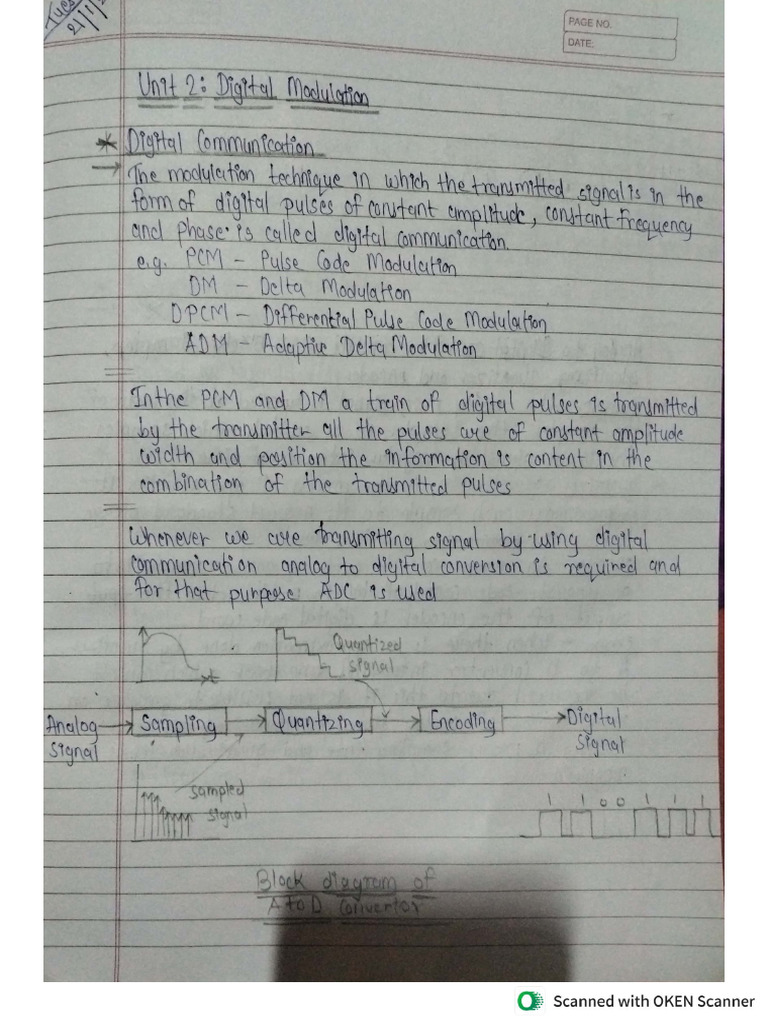 Tues
21/1/
PAGE NO.
DATE:
Unit 2: Digital Modulation
* Digital Communication
→ The modulation technique in which the transmitted signal is in the
form of digital pulses of constant amplitude, constant frequency
and phase is called digital communication.
e.g. PCM - Pulse Code Modulation
DM - Delta Modulation
DPCM - Differential Pulse Code Modulation
ADM - Adaptive Delta Modulation
In the PCM and DM a train of digital pulses is transmitted
by the transmitter all the pulses are of constant amplitude
width and position the information is content in the
combination of the transmitted pulses
Whenever we are transmitting signal by using digital
communication analog to digital conversion is required and
for that purpose ADC is used
Quantized
signal
t
Analog
signal
Sampling
Quantizing
Encoding
Digital
signal
sampled
signal
1 1 0 0 1 1 1
Block diagram of
A to D Convertor
Scanned with OKEN Scanner